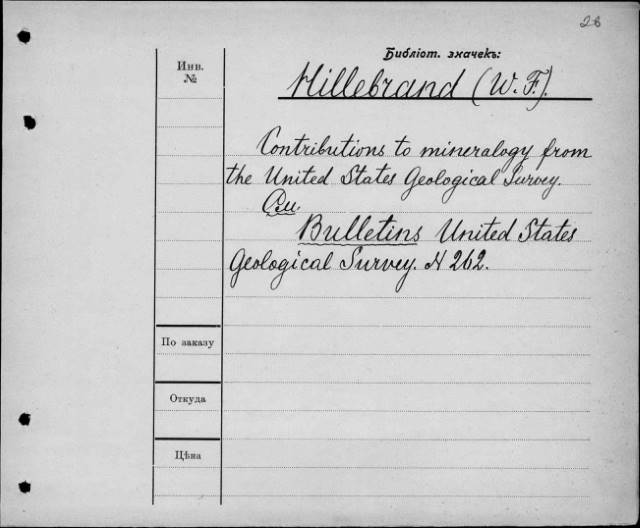 28
Библіот. значекъ:
Инв.
№
Hillebrand (W. F.).
Contributions to mineralogy from
the United States Geological Survey.
См.
Bulletins United States
Geological Survey. N 262.
По заказу
Откуда
Цѣна